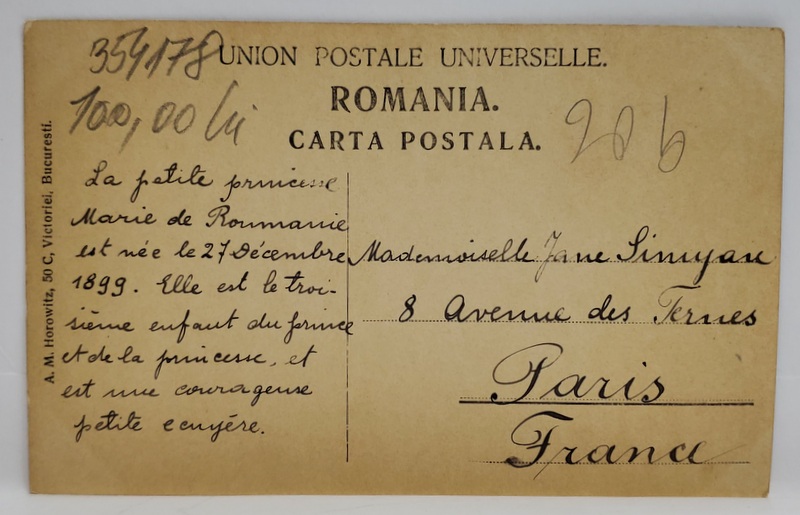 354178
UNION POSTALE UNIVERSELLE.
100,00 lei
ROMANIA.
CARTA POSTALA.
La petite princesse
Marie de Roumanie
est née le 27 Décembre
1899. Elle est le troi-
sième enfant du prince
et de la princesse, et
est une courageuse
petite ecuyére.
Mademoiselle Jane Simyan
8 Avenue des Ternes
Paris
France
A. M. Horowitz, 50 C, Victoriei, Bucuresti.